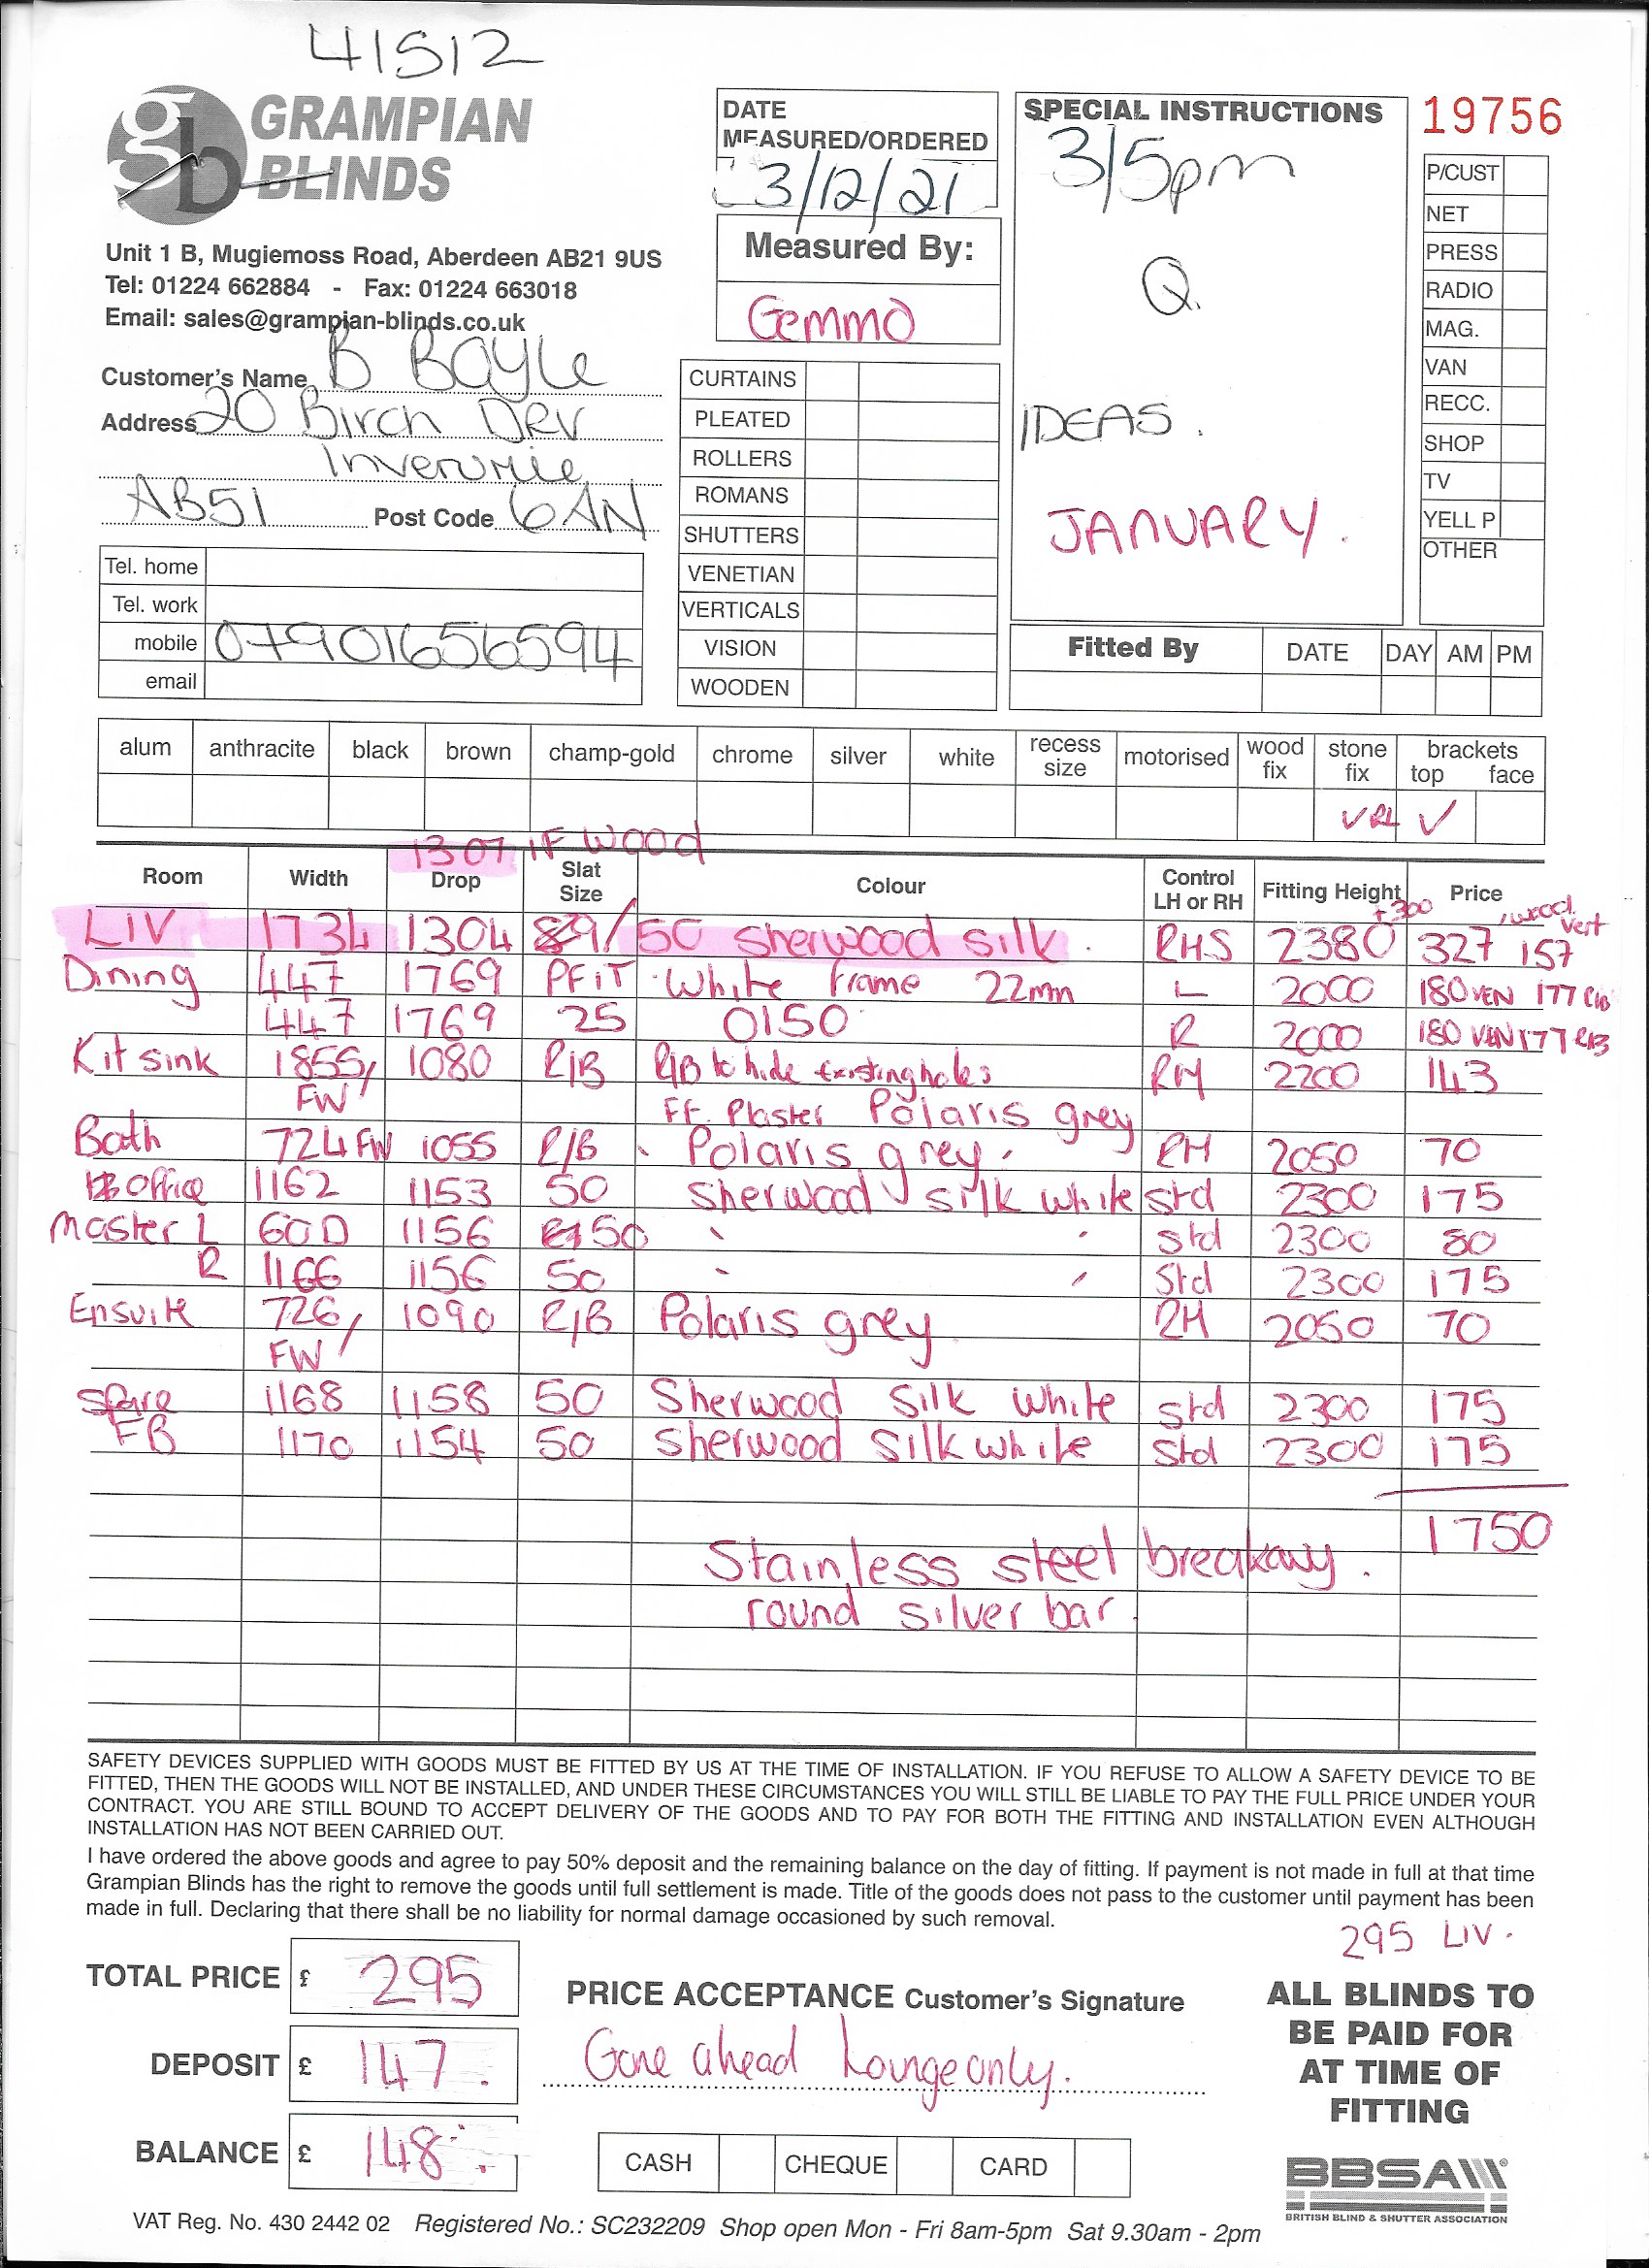 41512
GRAMPIAN
BLINDS
Unit 1 B, Mugiemoss Road, Aberdeen AB21 9US
Tel: 01224 662884 - Fax: 01224 663018
Email: sales@grampian-blinds.co.uk
Customer's Name B Boyle
Address 20 Birch DRV
Inverurie
AB51 Post Code 6AN
Tel. home
Tel. work
mobile 07901656594
email
DATE
MEASURED/ORDERED
3/12/21
Measured By:
Gemma
CURTAINS
PLEATED
ROLLERS
ROMANS
SHUTTERS
VENETIAN
VERTICALS
VISION
WOODEN
SPECIAL INSTRUCTIONS
3/5pm
Q.
IDEAS.
JANUARY.
19756
P/CUST
NET
PRESS
RADIO
MAG.
VAN
RECC.
SHOP
TV
YELL P
OTHER
Fitted By DATE DAY AM PM
alum anthracite black brown champ-gold chrome silver white recess size motorised wood fix stone fix brackets top face
1307 IF WOOD
Room Width Drop Slat Size Colour Control LH or RH Fitting Height Price
+300 / wood vert
LIV 1734 1304 89/50 Sherwood silk. RHS 2380 327 157
Dining 447 1769 PFiT White frame 22mm L 2000 180 VEN 177
447 1769 25 0150 R 2000 180 VEN 177
Kit sink 1855/ 1080 R/B R/B to hide existing holes RH 2200 143
FW FF. Plaster Polaris grey
Bath 724 FW 1055 R/B Polaris grey RH 2050 70
Office 1162 1153 50 Sherwood silk white std 2300 175
Master L 600 1156 50 std 2300 80
R 1166 1156 50 Std 2300 175
Ensuite 726/ 1090 R/B Polaris grey RH 2050 70
FW
Spare 1168 1158 50 Sherwood Silk White std 2300 175
FB 1170 1154 50 Sherwood Silk white Std 2300 175
1750
Stainless steel breakawy.
round silver bar
SAFETY DEVICES SUPPLIED WITH GOODS MUST BE FITTED BY US AT THE TIME OF INSTALLATION. IF YOU REFUSE TO ALLOW A SAFETY DEVICE TO BE
FITTED, THEN THE GOODS WILL NOT BE INSTALLED, AND UNDER THESE CIRCUMSTANCES YOU WILL STILL BE LIABLE TO PAY THE FULL PRICE UNDER YOUR
CONTRACT. YOU ARE STILL BOUND TO ACCEPT DELIVERY OF THE GOODS AND TO PAY FOR BOTH THE FITTING AND INSTALLATION EVEN ALTHOUGH
INSTALLATION HAS NOT BEEN CARRIED OUT.
I have ordered the above goods and agree to pay 50% deposit and the remaining balance on the day of fitting. If payment is not made in full at that time
Grampian Blinds has the right to remove the goods until full settlement is made. Title of the goods does not pass to the customer until payment has been
made in full. Declaring that there shall be no liability for normal damage occasioned by such removal.
295 LIV.
TOTAL PRICE £ 295
DEPOSIT £ 147.
BALANCE £ 148
PRICE ACCEPTANCE Customer's Signature
Gone ahead Lounge only.
CASH CHEQUE CARD
ALL BLINDS TO
BE PAID FOR
AT TIME OF
FITTING
BBSA
BRITISH BLIND & SHUTTER ASSOCIATION
VAT Reg. No. 430 2442 02 Registered No.: SC232209 Shop open Mon - Fri 8am-5pm Sat 9.30am - 2pm